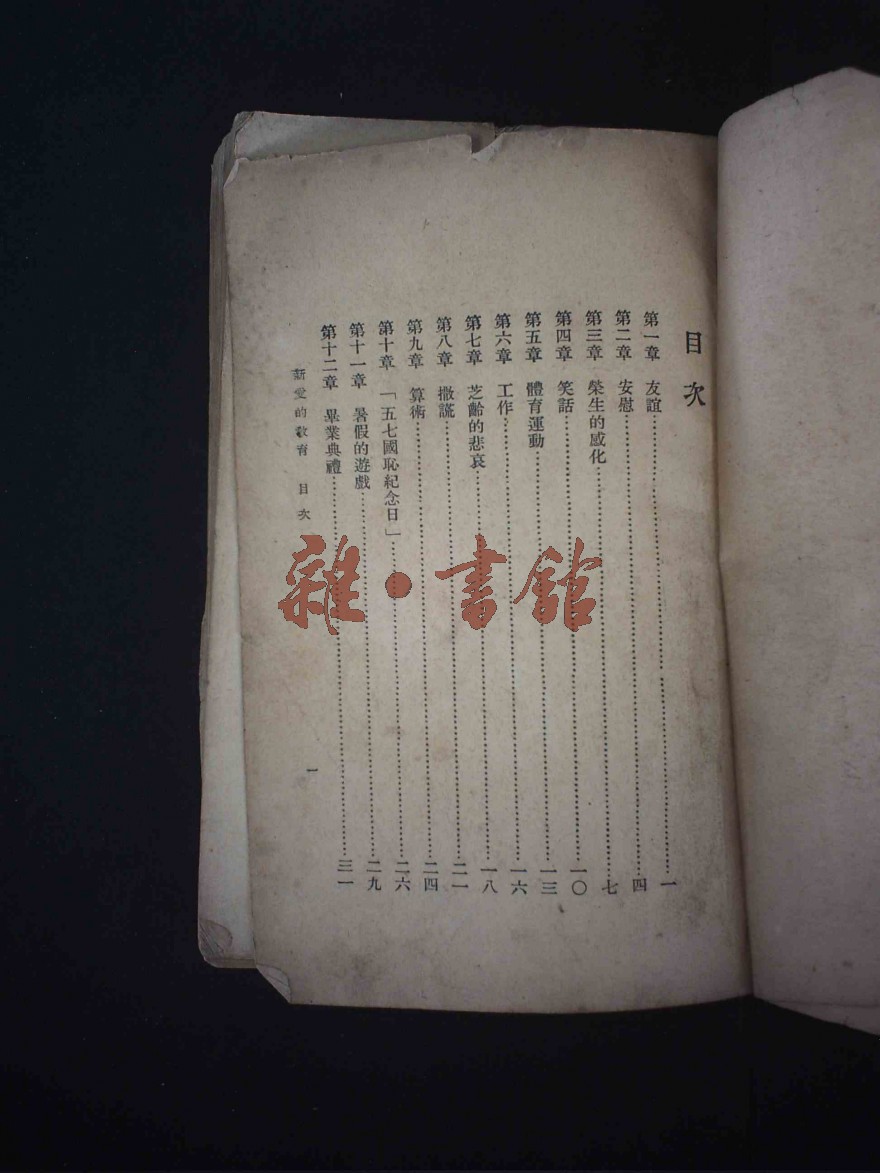 目次
第一章 友誼……一
第二章 安慰……四
第三章 榮生的感化……七
第四章 笑話……一〇
第五章 體育運動……一三
第六章 工作……一六
第七章 芝齡的悲哀……一八
第八章 撒謊……二一
第九章 算術……二四
第十章 「五七國恥紀念日」……二六
第十一章 暑假的遊戲……二九
第十二章 畢業典禮……三一
新愛的教育 目次 一
雜·書館